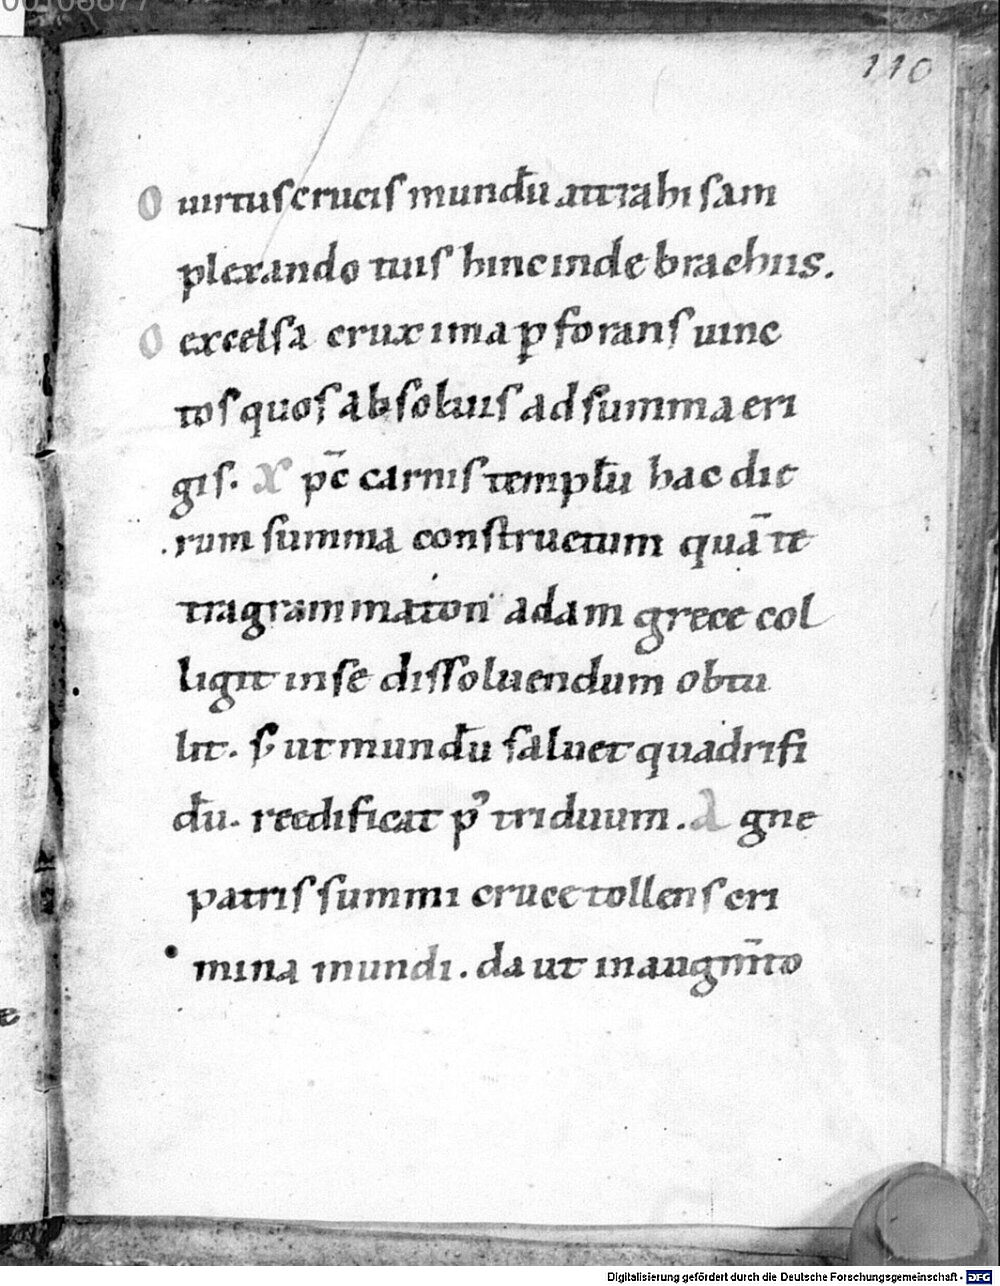 00108677
110
O uirtus crucis mundū attrahis am
plexando tuis hinc inde brachiis.
O excelsa crux ima ꝑforans uinc
tos quos absoluis ad summa eri
gis. X p̄c carnis templū hac die
rum summa constructum quā te
tragrammaton adam grece col
ligit in se dissoluendum obtu
lit. s; ut mundū saluet quadrifi
dū. reedificat p᷒ triduum. A gne
patris summi cruce tollens cri
mina mundi. da ut in augm̄to
Digitalisierung gefördert durch die Deutsche Forschungsgemeinschaft - DFG